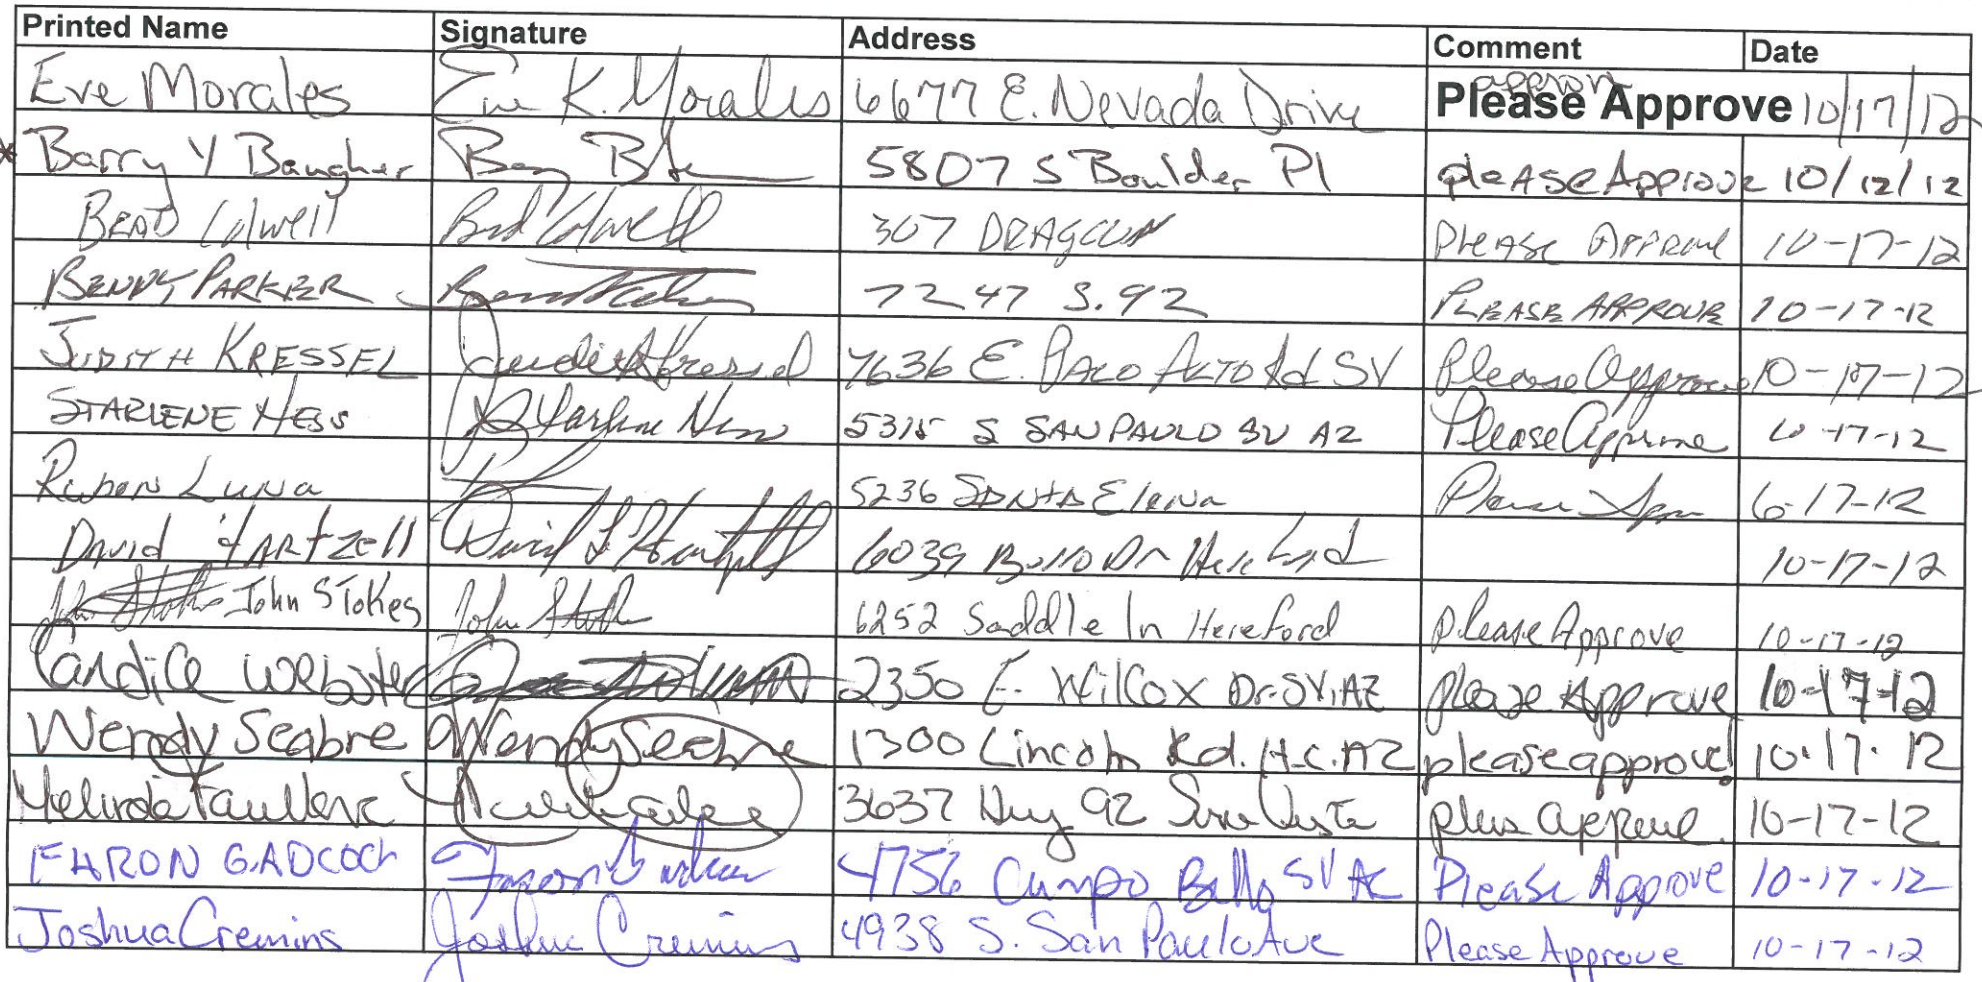 Printed Name Signature Address Comment Date
Eve Morales Eve K. Morales 6677 E. Nevada Drive Please Approve 10/17/12
* Barry Y Baugher 5807 S Boulder Pl please Approve 10/12/12
BRAD Colwell Brad Colwell 307 DRAGOON Please Approve 10-17-12
BENNY PARKER 7247 S. 92 PLEASE APPROVE 10-17-12
JUDITH KRESSEL Judith Kressel 7636 E. PALO ALTO Rd SV Please Approve 10-17-12
STARLENE HESS Starlene Hess 5315 S SAN PAULO SV AZ Please Approve 10-17-12
Ruben Luna 5236 SANTA Elena Please 6-17-12
David HARTZell David L Hartzell 6039 Burro Dr Hereford 10-17-12
John Stokes John 6252 Saddle ln Hereford please Approve 10-17-12
Candice Webster 2350 E. Wilcox Dr. SV. AZ please Approve 10-17-12
Wendy Seabre Wendy Seabre 1300 Lincoln Rd. H.C. AZ please approve! 10-17-12
3637 Hwy 92 Sierra Vista 10-17-12
FARON G. ADCOCK Faron 4756 Campo Bello SV AZ Please Approve 10-17-12
Joshua Cremins Joshua Cremins 4938 S. San Paulo Ave Please Approve 10-17-12